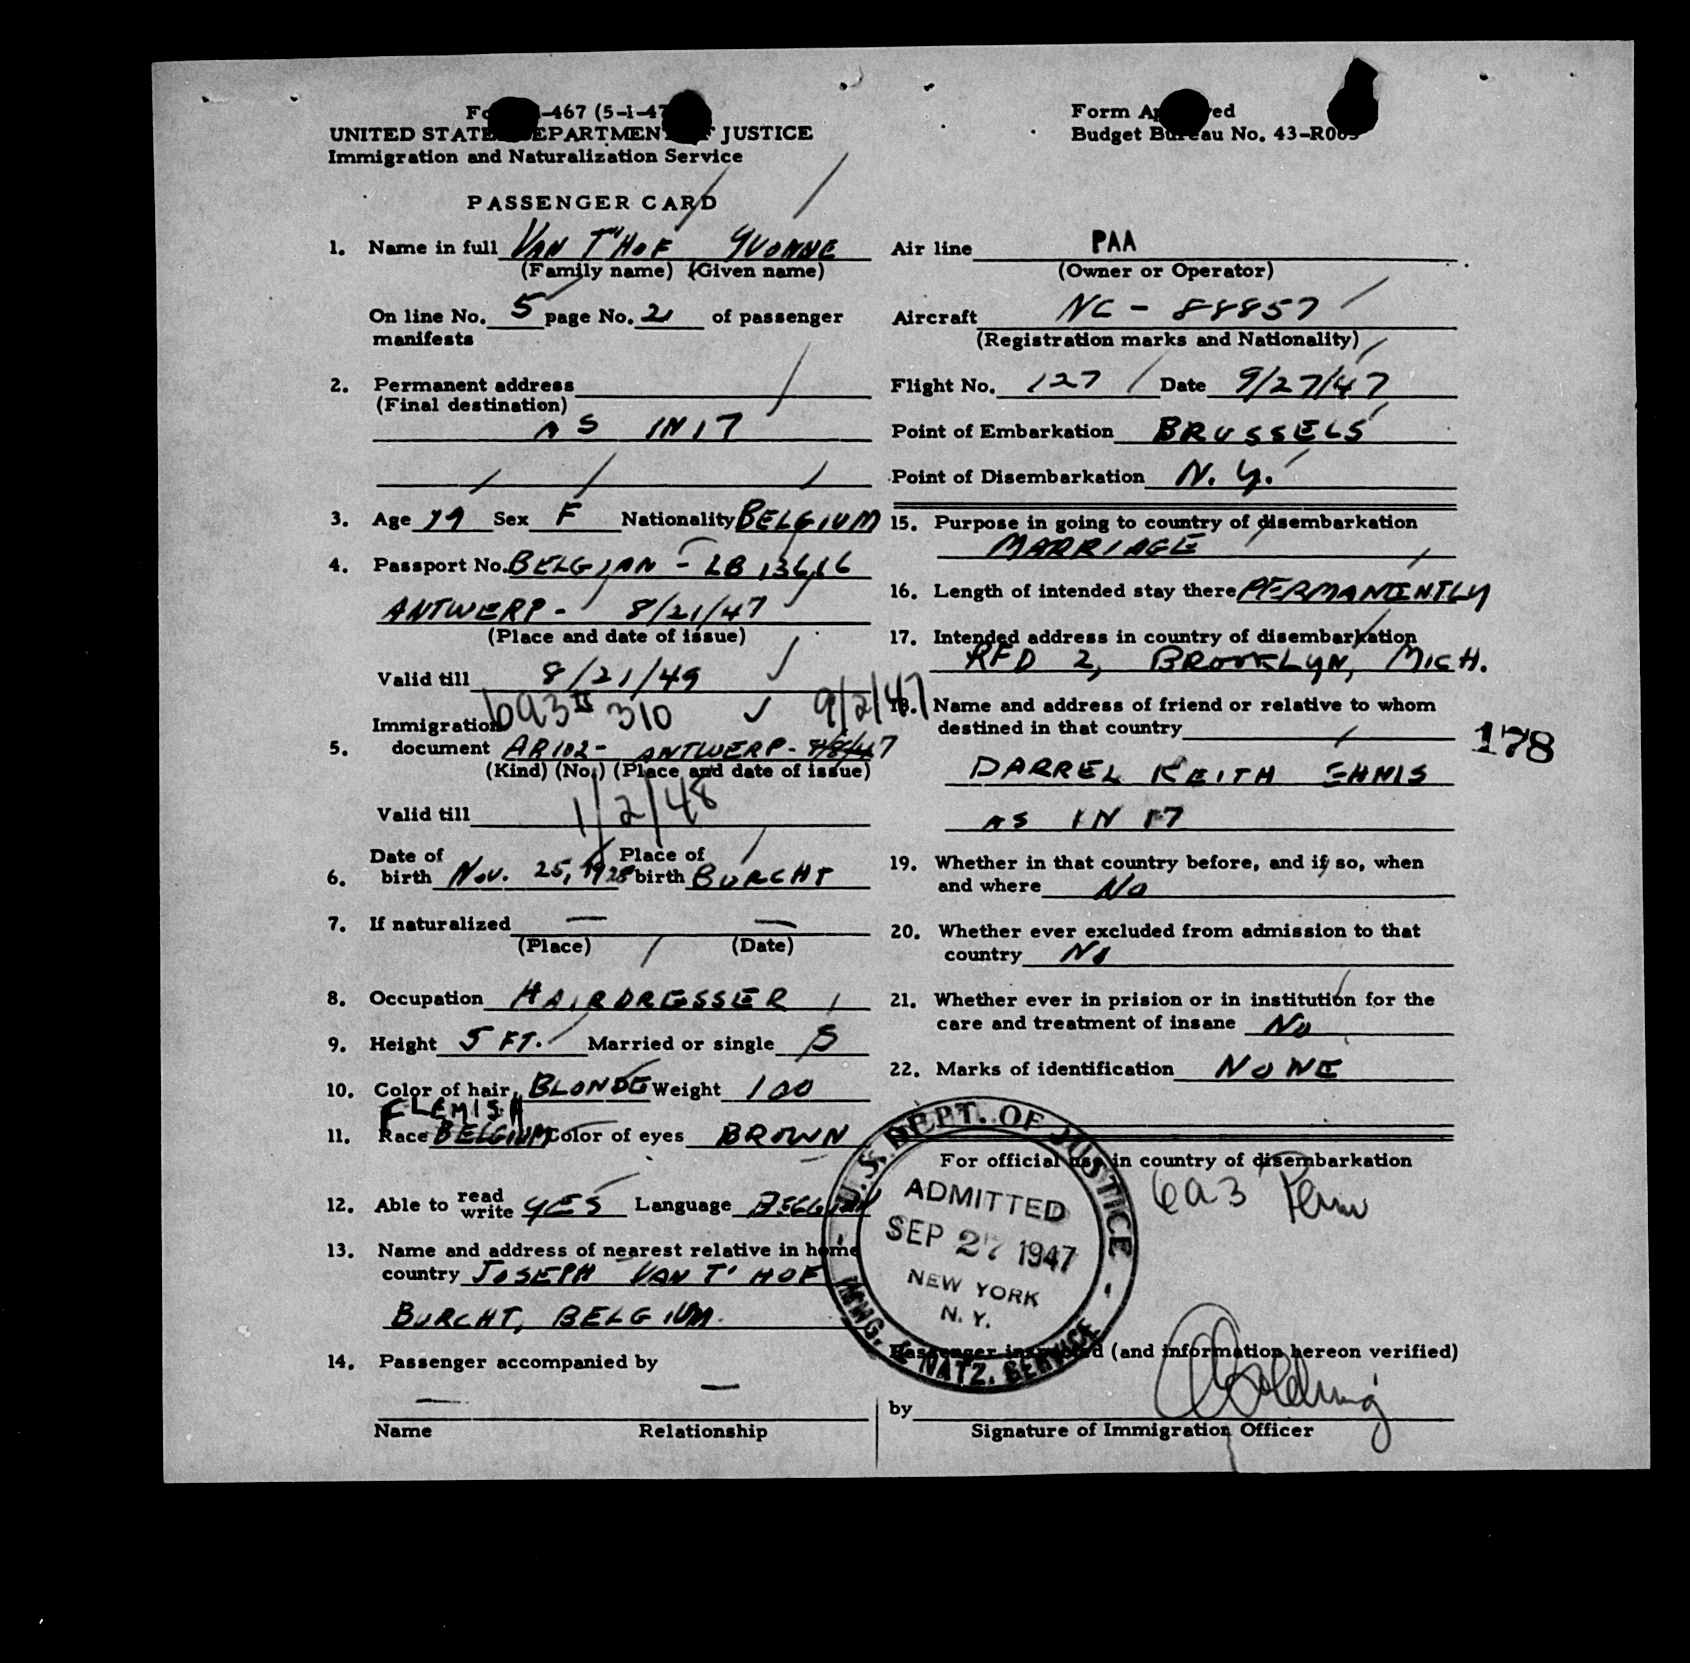 -467 (5-1-47
UNITED STATES DEPARTMENT OF JUSTICE
Immigration and Naturalization Service
PASSENGER CARD
1. Name in full VAN T'HOF YVONNE
(Family name) (Given name)
On line No. 5 page No. 2 of passenger
manifests
2. Permanent address
(Final destination)
AS IN 17
3. Age 19 Sex F Nationality BELGIUM
4. Passport No. BELGIAN - LB 13616
ANTWERP - 8/21/47
(Place and date of issue)
Valid till 8/21/49
6a3 II 310 9/2/47
Immigration
5. document AR102 - ANTWERP - 8/8/47
(Kind) (No.) (Place and date of issue)
Valid till 1/2/48
Date of Place of
6. birth Nov. 25, 1928 birth BURCHT
7. If naturalized — —
(Place) (Date)
8. Occupation HAIRDRESSER
9. Height 5 FT. Married or single S
10. Color of hair BLONDE Weight 100
FLEMISH
11. Race BELGIUM Color of eyes BROWN
12. Able to read write YES Language BELGIAN
13. Name and address of nearest relative in home
country JOSEPH VAN T' HOF
BURCHT, BELGIUM.
14. Passenger accompanied by
— —
Name Relationship
Form Approved
Budget Bureau No. 43-R065
Air line PAA
(Owner or Operator)
Aircraft NC - 88857
(Registration marks and Nationality)
Flight No. 127 Date 9/27/47
Point of Embarkation BRUSSELS
Point of Disembarkation N. Y.
15. Purpose in going to country of disembarkation
MARRIAGE
16. Length of intended stay there PERMANENTLY
17. Intended address in country of disembarkation
RFD 2, BROOKLYN, MICH.
18. Name and address of friend or relative to whom
destined in that country
178
DARREL KEITH EHNIS
AS IN 17
19. Whether in that country before, and if so, when
and where No
20. Whether ever excluded from admission to that
country No
21. Whether ever in prision or in institution for the
care and treatment of insane No
22. Marks of identification NONE
For official use in country of disembarkation
6a3 Perm
U.S. DEPT. OF JUSTICE
ADMITTED
SEP 27 1947
NEW YORK
N. Y.
IMMG. & NATZ. SERVICE
Passenger inspected (and information hereon verified)
by
Signature of Immigration Officer